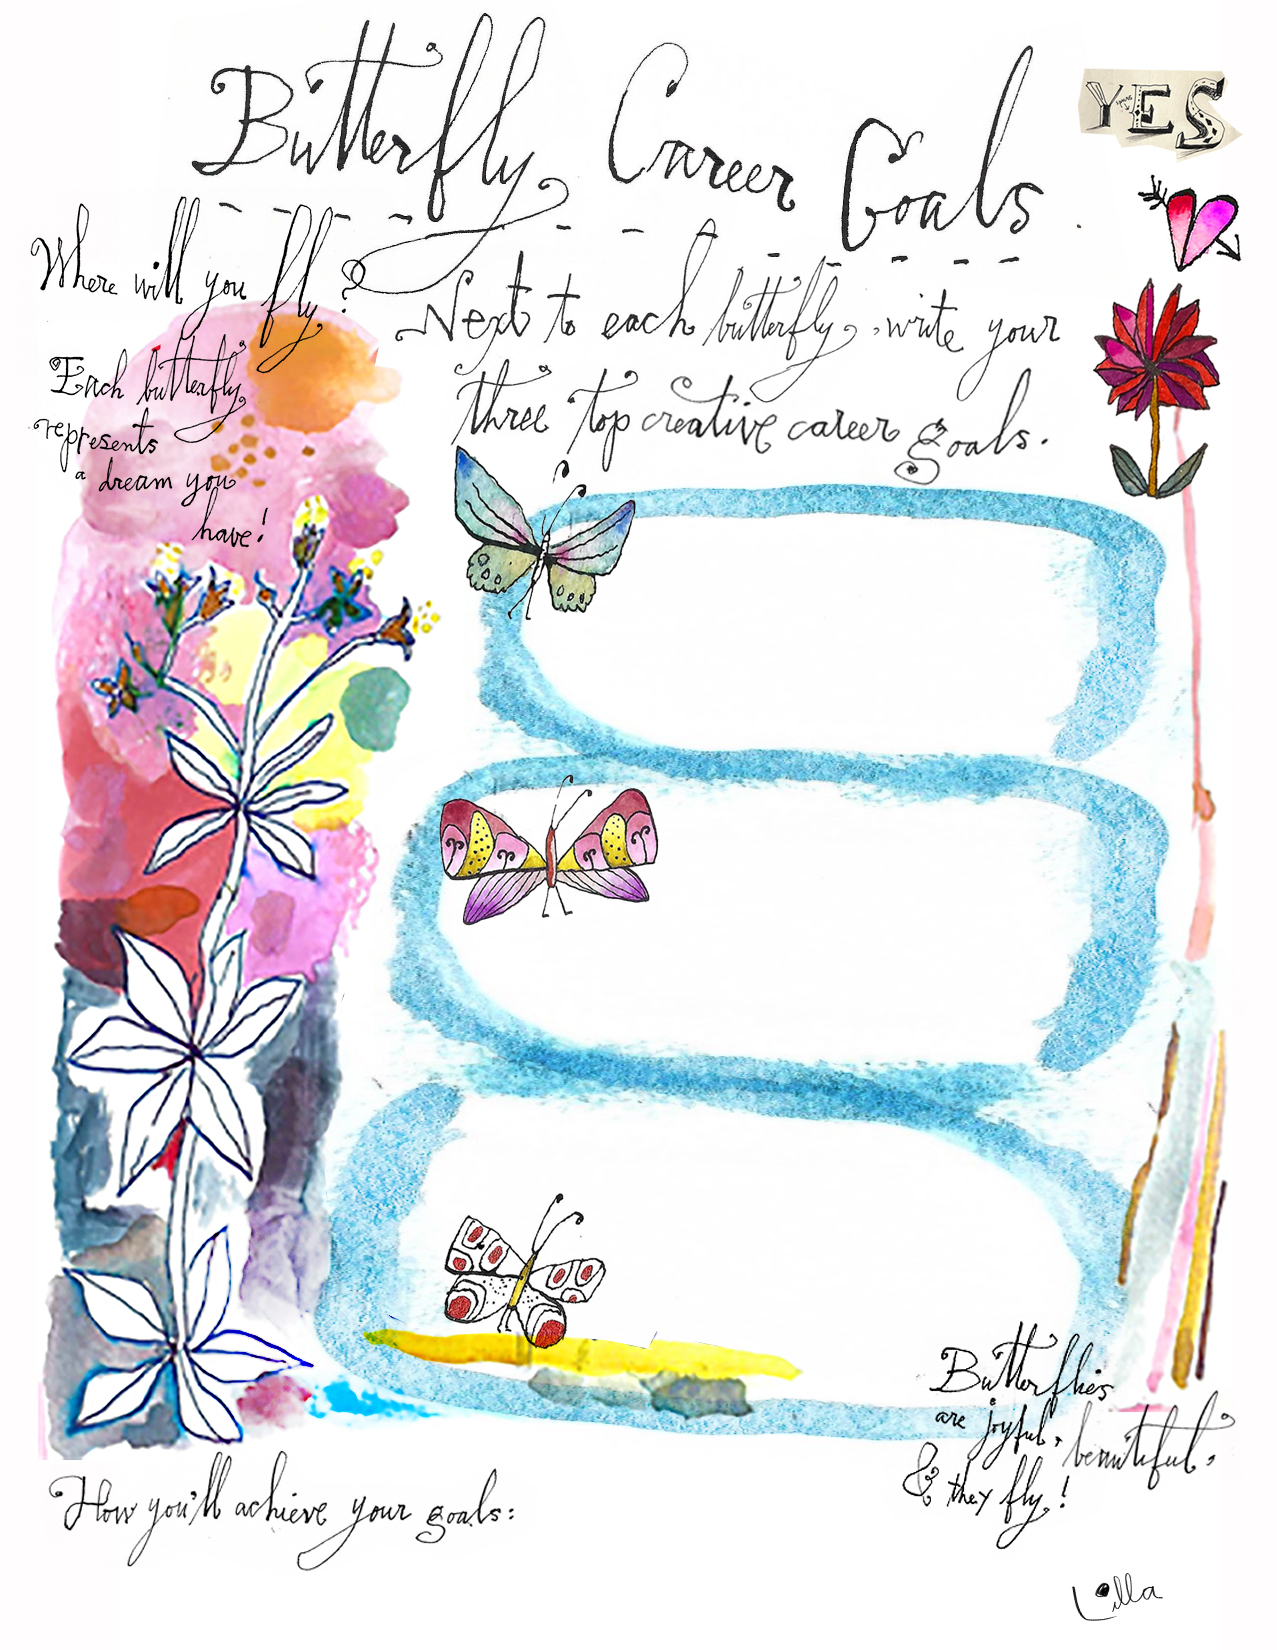 Butterfly Career Goals
YES
Where will you fly?
Next to each butterfly, write your
three top creative career goals.
Each butterfly
represents
a dream you
have!
Butterflies
are joyful, beautiful,
& they fly!
How you'll achieve your goals:
Lilla